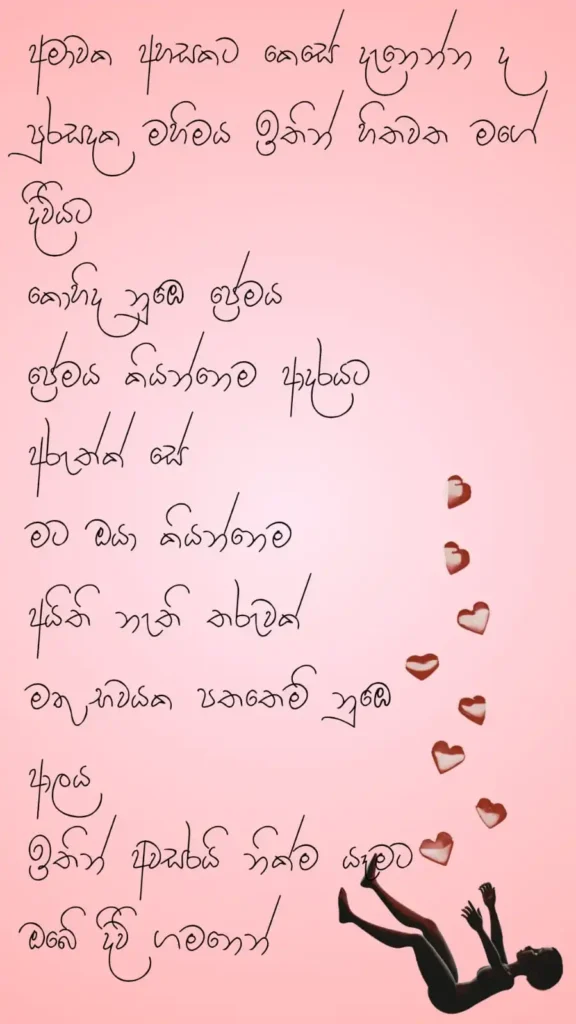 අමාවක අහසකට කෙසේ දැනෙන්න ද
පුරසඳක මහිමය ඉතින් හිතවත මගේ
දිවියට
කොහිද නුඹෙ ප්‍රේමය
ප්‍රේමය කියන්නෙම ආදරයට
අරුත්ක් සේ
මට ඔයා කියන්නෙම
අයිති නැති තරුවක්
මතු භවයක පතතෙමි නුඹෙ
ආලය
ඉතින් අවසරයි නික්ම යෑමට
ඔබේ දිවි ගමනෙන්